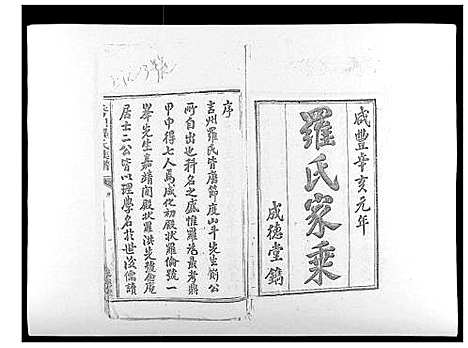 咸豐辛亥元年
羅氏家乘
成德堂鐫
序
吉州羅氏皆唐節度山斗先生崱公
所自出也科名之盛惟羅為最考鼎
甲中得七人焉成化初殿狀羅倫號一
峯先生嘉靖間殿狀羅洪先號念庵
居士二公皆以理學名於世後儒讀